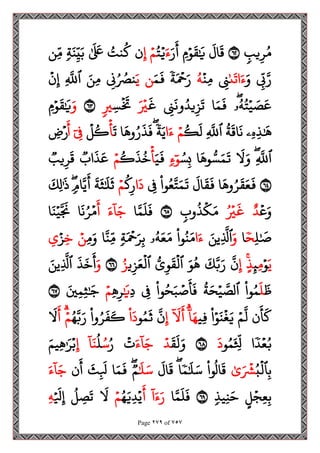 مُرِيبٍ ٦٢ قَالَ يَـٰقَوْمِ أَرَءَيْتُمْ إِن كُنتُ عَلَىٰ بَيِّنَةٍ مِّن
رَّبِّى وَءَاتَىٰنِى مِنْهُ رَحْمَةً فَمَن يَنصُرُنِى مِنَ ٱللَّهِ إِنْ
عَصَيْتُهُۥ ۖ فَمَا تَزِيدُونَنِى غَيْرَ تَخْسِيرٍ ٦٣ وَيَـٰقَوْمِ
هَـٰذِهِۦ نَاقَةُ ٱللَّهِ لَكُمْ ءَايَةً ۖ فَذَرُوهَا تَأْكُلْ فِىٓ أَرْضِ
ٱللَّهِ ۖ وَلَا تَمَسُّوهَا بِسُوٓءٍ فَيَأْخُذَكُمْ عَذَابٌ قَرِيبٌ
٦٤ فَعَقَرُوهَا فَقَالَ تَمَتَّعُوا۟ فِى دَارِكُمْ ثَلَـٰثَةَ أَيَّامٍ ۖ ذَٰلِكَ
وَعْدٌ غَيْرُ مَكْذُوبٍ ٦٥ فَلَمَّا جَآءَ أَمْرُنَا نَجَّيْنَا
صَـٰلِحًا وَٱلَّذِينَ ءَامَنُوا۟ مَعَهُۥ بِرَحْمَةٍ مِّنَّا وَمِنْ خِزْىِ
يَوْمِئِذٍ ۗ إِنَّ رَبَّكَ هُوَ ٱلْقَوِىُّ ٱلْعَزِيزُ ٦٦ وَأَخَذَ ٱلَّذِينَ
ظَلَمُوا۟ ٱلصَّيْحَةُ فَأَصْبَحُوا۟ فِى دِيَـٰرِهِمْ جَـٰثِمِينَ ٦٧
كَأَن لَّمْ يَغْنَوْا۟ فِيهَآ ۗ أَلَآ إِنَّ ثَمُودَا۟ كَفَرُوا۟ رَبَّهُمْ ۗ أَلَا
بُعْدًا لِّثَمُودَ ٦٨ وَلَقَدْ جَآءَتْ رُسُلُنَآ إِبْرَٰهِيمَ
بِٱلْبُشْرَىٰ قَالُوا۟ سَلَـٰمًا ۖ قَالَ سَلَـٰمٌ ۖ فَمَا لَبِثَ أَن جَآءَ
بِعِجْلٍ حَنِيذٍ ٦٩ فَلَمَّا رَءَآ أَيْدِيَهُمْ لَا تَصِلُ إِلَيْهِ
Page ٢٧٩ of ٧٥٧